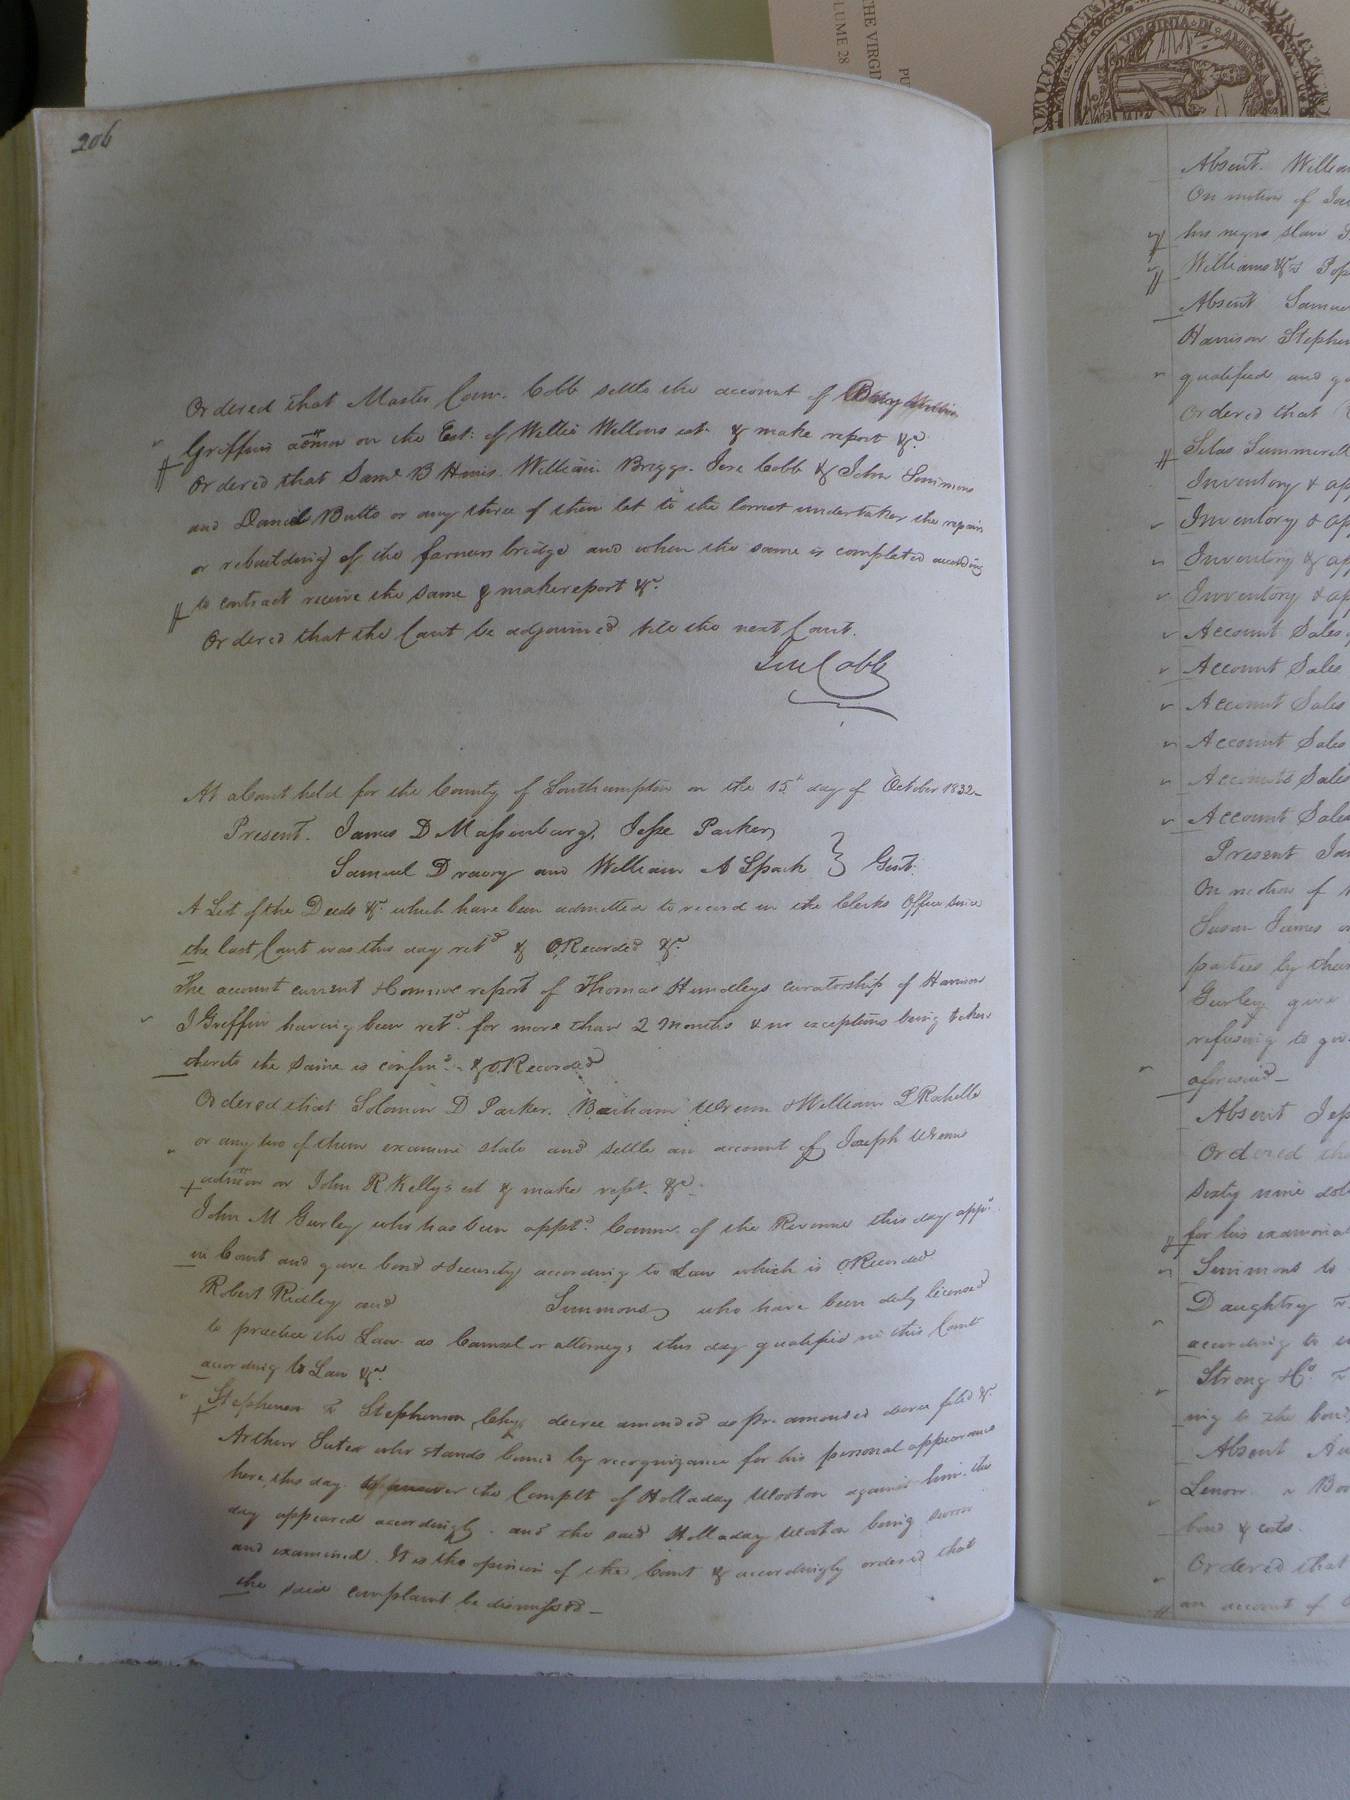 206
Ordered that Master Com. Cobb settle the account of
Griffin admor on the Est: of Willie Wellons est. & make report &c.
Ordered that Saml B Hines. William Briggs. Jere Cobb & John Simmons
and Daniel Butts or any three of them let to the lowest undertaker the repairs
or rebuilding of the farmers bridge and when the same is completed according
to contract receive the same & make report &c.
Ordered that the Court be adjourned till the next Court.
Jere Cobb
At a Court held for the County of Southampton on the 15th day of October 1832
Present. James D Massenburg, Jesse Parker,
Samuel Drewry and William A Spark } Gent.
A List of the Deeds &c. which have been admitted to record in the Clerks Office since
the last Court was this day retd & O.Recorded &c.
The account current & Commrs report of Thomas Hundleys curatorship of Harrison
J Griffin having been retd. for more than 2 months & no exceptions being taken
thereto the same is confirmd. & O.Recorded
Ordered that Solomon D Parker. Barham Wrenn & William L Rochelle
or any two of them examine state and settle an account of Joseph Wrenn
admor on John R Kellys est & make rept. &c.
John M Gurley who has been apptd. Commr. of the Revenue this day appd.
in Court and gave bond & Security according to Law which is O Recorded
Robert Ridley and Simmons who have been duly licensed
to practice the Law as Counsel or attorneys this day qualified in this Court
according to Law &c.
Stephenson vs Stephenson Chy decree amended as pr. amended decree filed &c
Arthur who stands bound by recognizance for his personal appearance
here this day to answer the Complt of Holladay Wooton against him. this
day appeared accordingly. and the said Holladay Wooton being sworn
and examined. It is the opinion of the Court & accordingly ordered that
the said complaint be dismissed
THE VIRGI
LUME 28
PU
VIRGINIA IN AMER
Absent. Willia
On motion of Ja
his negro slave
Williams &c vs Pop
Absent Samue
Harrison Stephen
qualified and g
Ordered that
Silas Summerell
Inventory & ap
Inventory & ap
Inventory & ap
Inventory & ap
Account Sales
Account Sales
Account Sales
Account Sales
Accounts Sales
Account Sales
Present Ja
On motion of
Susan James
parties by their
Gurley give
refusing to giv
aforesaid
Absent Je
Ordered tha
Sixty nine dol
for his examina
Simmons to
Daughtry vs
according to
Strong & Co. vs
ing to the bond
Absent
Lenow vs Bo
bond & costs.
Ordered that
an account of